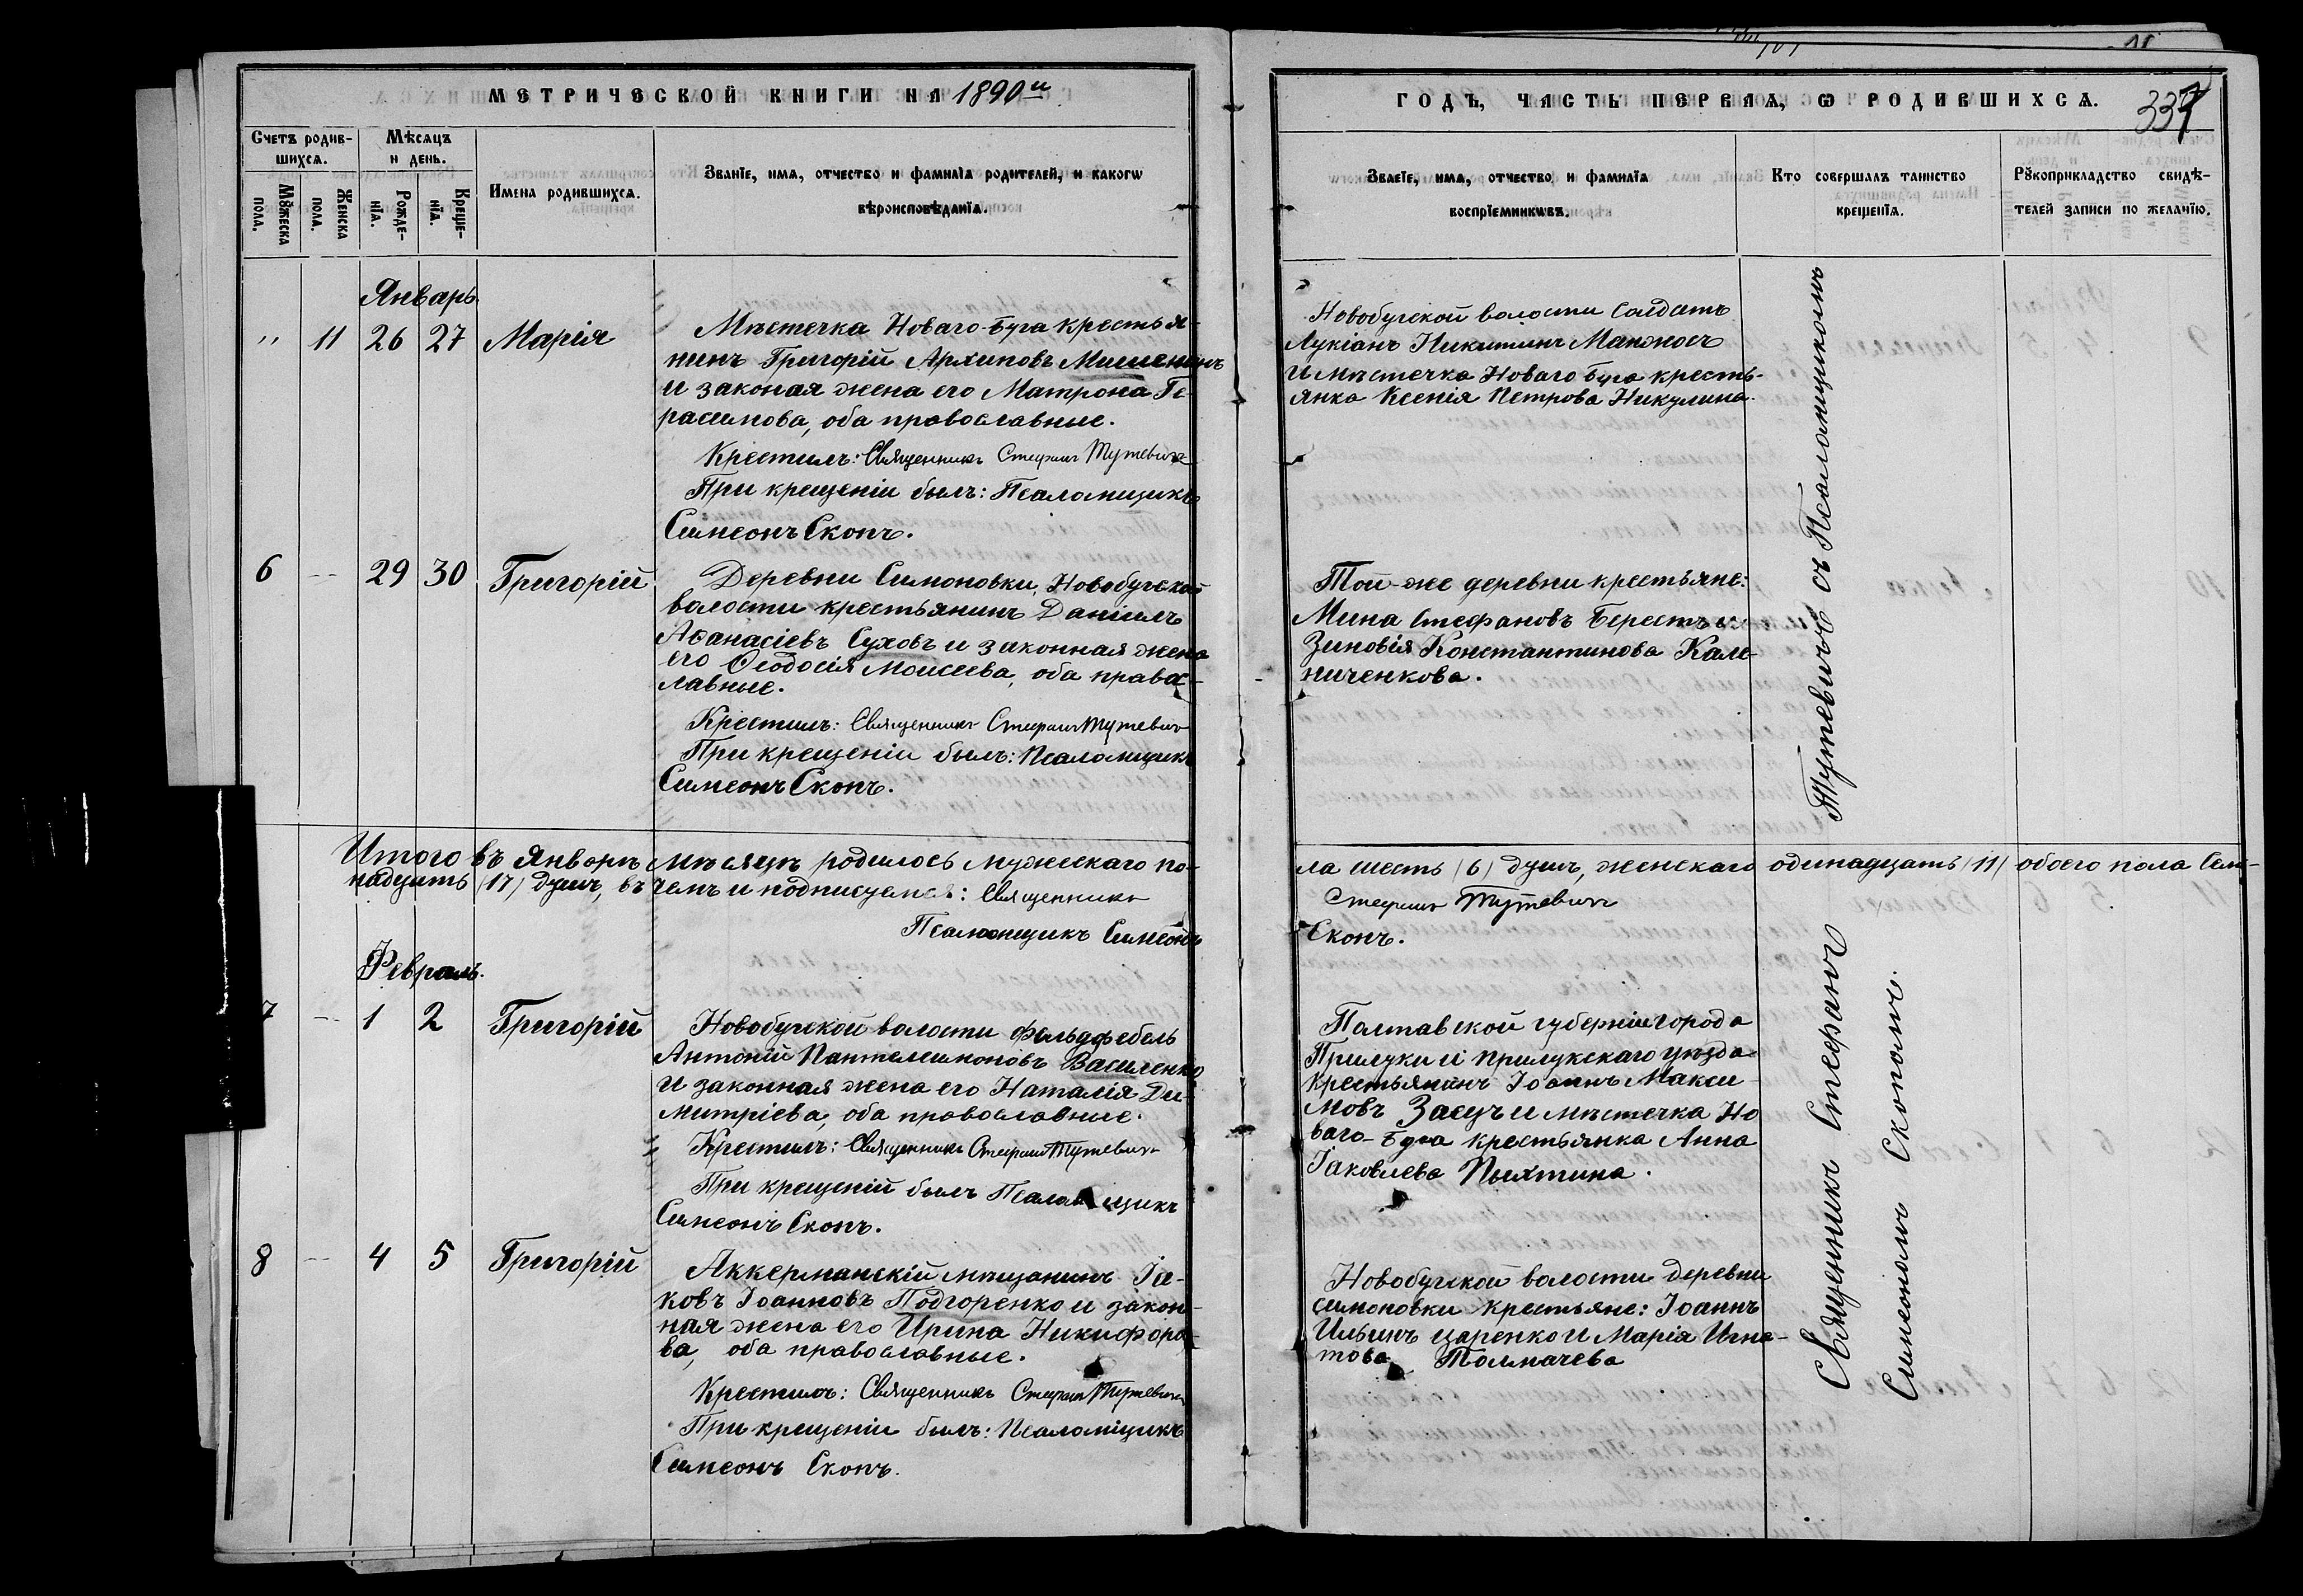 МЕТРИЧЕСКОЙ КНИГИ НА 1890й
ГОДЪ, ЧАСТЬ ПЕРВАЯ, Ѡ РОДИВШИХСѦ.
337
Счетъ родив-
шихсѧ.
Мѣсѧцъ
и день.
Мꙋжеска
пола.
Женска
пола.
Рожде-
нїѧ.
Креще-
нїѧ.
Имена родившихсѧ.
Званїе, имѧ, отчество и фамилїѧ родителей, и какогѡ
вѣроисповѣданїѧ.
Званїе, имѧ, отчество и фамилїѧ
воспрїемникѡвъ.
Кто совершалъ таинство
крещенїѧ.
Рꙋкоприкладство свидѣ-
телей записи по желанїю.
Январь.
" 11 26 27 Марія
Мѣстечка Новаго-Буга крестья-
нинъ Григорій Архиповъ Мишенинъ
и законая жена его Матрона Ге-
расимова, оба православные.
Крестилъ: Священникъ Стефанъ Тутевичъ
При крещеніи былъ: Псаломщикъ
Симеонъ Скопъ.
Новобугской волости солдатъ
Лукіанъ Никитинъ
и мѣстечка Новаго Буга кресть-
янка Ксенія Петрова Никулина.
6 -- 29 30 Григорій
Деревни Симоновки, Новобугской
волости крестьянинъ Даніилъ
Аѳанасіевъ Суховъ и законная жена
его Ѳеодосія Моисеева, оба правос-
лавные.
Крестилъ: Священникъ Стефанъ Тутевичъ
При крещеніи былъ: Псаломщикъ
Симеонъ Скопъ.
Той-же деревни крестьяне:
Мина Стефановъ Берестъ и
Зиновія Константинова Кале-
ниченкова.
Итого въ Январѣ мѣсяцѣ родилось мужескаго по-
ла шесть (6) душъ, женскаго одинадцать (11) обоего пола сем-
надцать (17) душъ, въ чемъ и подписуемся: Священникъ
Стефанъ Тутевичъ
Псаломщикъ Симеонъ
Скопъ.
Февраль.
7 -- 1 2 Григорій
Новобугской волости фельдфебель
Антоній Пантелеимоновъ Василенко
и законная жена его Наталія Ди-
митріева, оба православные.
Крестилъ: Священникъ Стефанъ Тутевичъ
При крещеніи былъ Псаломщикъ
Симеонъ Скопъ.
Полтавской губерніи города
Прилуки и Прилукскаго уѣзда
крестьянинъ Іоаннъ Макси-
мовъ Заецъ и мѣстечка Но
ваго-Буга крестьянка Анна
Іаковлева Пыхтина.
8 -- 4 5 Григорій
Аккерманскій мѣщанинъ Іа-
ковъ Іоанновъ Подгоренко и закон-
ная жена его Ирина Никифоро-
ва, оба православные.
Крестилъ: Священникъ Стефанъ Тутевичъ
При крещеніи былъ: Псаломщикъ
Симеонъ Скопъ.
Новобугской волости деревни
Симоновки крестьяне: Іоаннъ
Ильинъ Царенко и Марія Игна-
това Толмачева
Священникъ Стефанъ Тутевичъ съ Псаломщикомъ
Симеономъ Скопомъ.